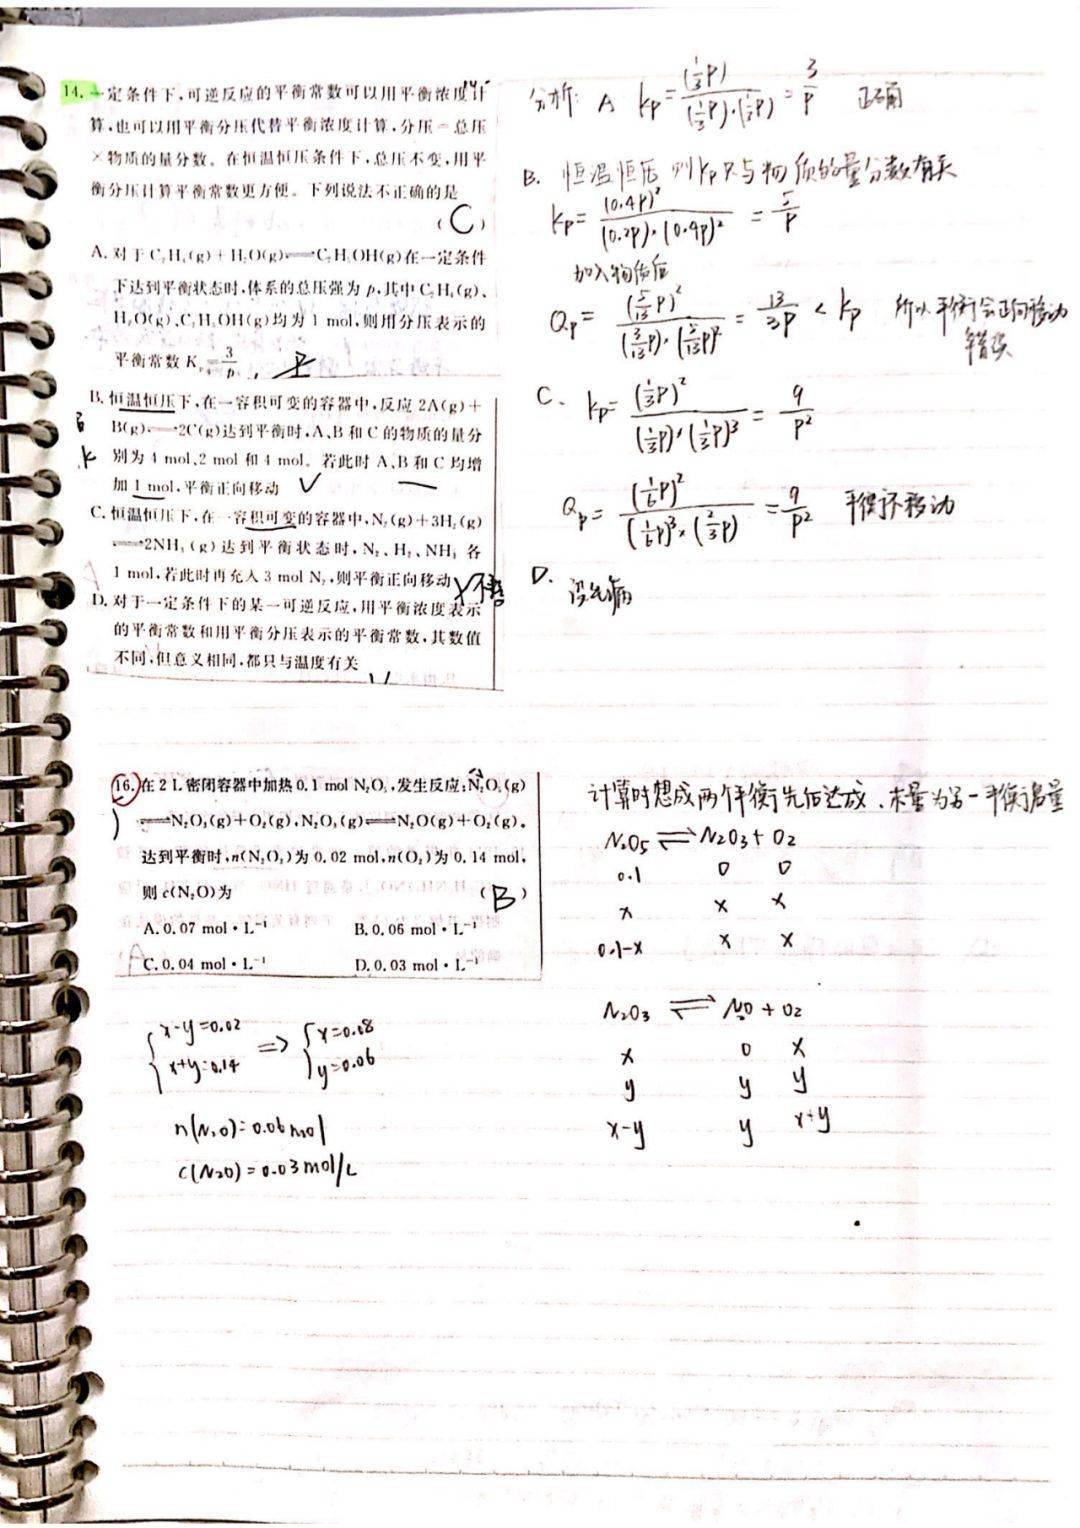 14. 一定条件下,可逆反应的平衡常数可以用平衡浓度计
算,也可以用平衡分压代替平衡浓度计算,分压=总压
×物质的量分数。在恒温恒压条件下,总压不变,用平
衡分压计算平衡常数更方便。下列说法不正确的是
(C)
A. 对于C₂H₄(g)+H₂O(g)⇌C₂H₅OH(g)在一定条件
下达到平衡状态时,体系的总压强为p,其中C₂H₄(g)、
H₂O(g)、C₂H₅OH(g)均为1 mol,则用分压表示的
平衡常数Kₚ=3/p
B. 恒温恒压下,在一容积可变的容器中,反应2A(g)+
B(g)⇌2C(g)达到平衡时,A、B和C的物质的量分
别为4 mol、2 mol和4 mol。若此时A、B和C均增
加1 mol,平衡正向移动 √
C. 恒温恒压下,在一容积可变的容器中,N₂(g)+3H₂(g)
⇌2NH₃(g)达到平衡状态时,N₂、H₂、NH₃各
1 mol,若此时再充入3 mol N₂,则平衡正向移动 ×
D. 对于一定条件下的某一可逆反应,用平衡浓度表示
的平衡常数和用平衡分压表示的平衡常数,其数值
不同,但意义相同,都只与温度有关 √
分析: A Kp=(1/3P)/((1/3P)·(1/3P))=3/P 正确
B. 恒温恒压 则Kp只与物质的量分数有关
Kp=(0.4P)²/((0.2P)·(0.4P)²)=5/P
加入物质后
Qp=(5/13P)²/((3/13P)·(5/13P)²)=13/3P<Kp 所以平衡会正向移动
错误
C. Kp=(1/3P)²/((1/3P)·(1/3P)³)=9/P²
Qp=(1/6P)²/((1/6P)³×(2/3P))=9/P² 平衡不移动
D. 没毛病
16. 在2 L密闭容器中加热0.1 mol N₂O₅,发生反应:N₂O₅(g)
⇌N₂O₃(g)+O₂(g),N₂O₃(g)⇌N₂O(g)+O₂(g)。
达到平衡时,n(N₂O₃)为0.02 mol,n(O₂)为0.14 mol,
则c(N₂O)为 (B)
A. 0.07 mol·L⁻¹ B. 0.06 mol·L⁻¹
C. 0.04 mol·L⁻¹ D. 0.03 mol·L⁻¹
{x-y=0.02 x+y=0.14 => {x=0.08 y=0.06
n(N₂O)=0.06mol
c(N₂O)=0.03mol/L
计算时想成两个平衡先后达成,末量为另一平衡启量
N₂O₅⇌N₂O₃+O₂
0.1 0 0
x x x
0.1-x x x
N₂O₃⇌N₂O+O₂
x 0 x
y y y
x-y y x+y